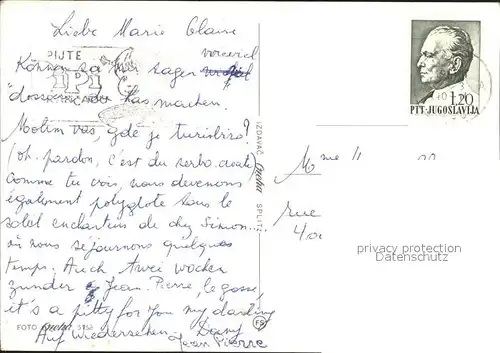 Liebe Marie Claire
PIJTE
Können sa mir sagen
"dosser" das machen.
Molim vas, gde je turistbiro?
(oh pardon, c'est du serbo croate)
comme tu vois, nous devenons
également polyglote sous le
soleil enchanteur de chez Simon...
où nous séjournons quelques
temps. Auch zwei wochen
zunder Jean-Pierre, le gosse,
it's a pitty for you my darling
Auf Wiedersehen Dany
Jean Pierre
FOTO
IZDAVAČ SPLIT
FS
1.20
PTT-JUGOSLAVIJA
Mme
rue
privacy protection
delcampe.net